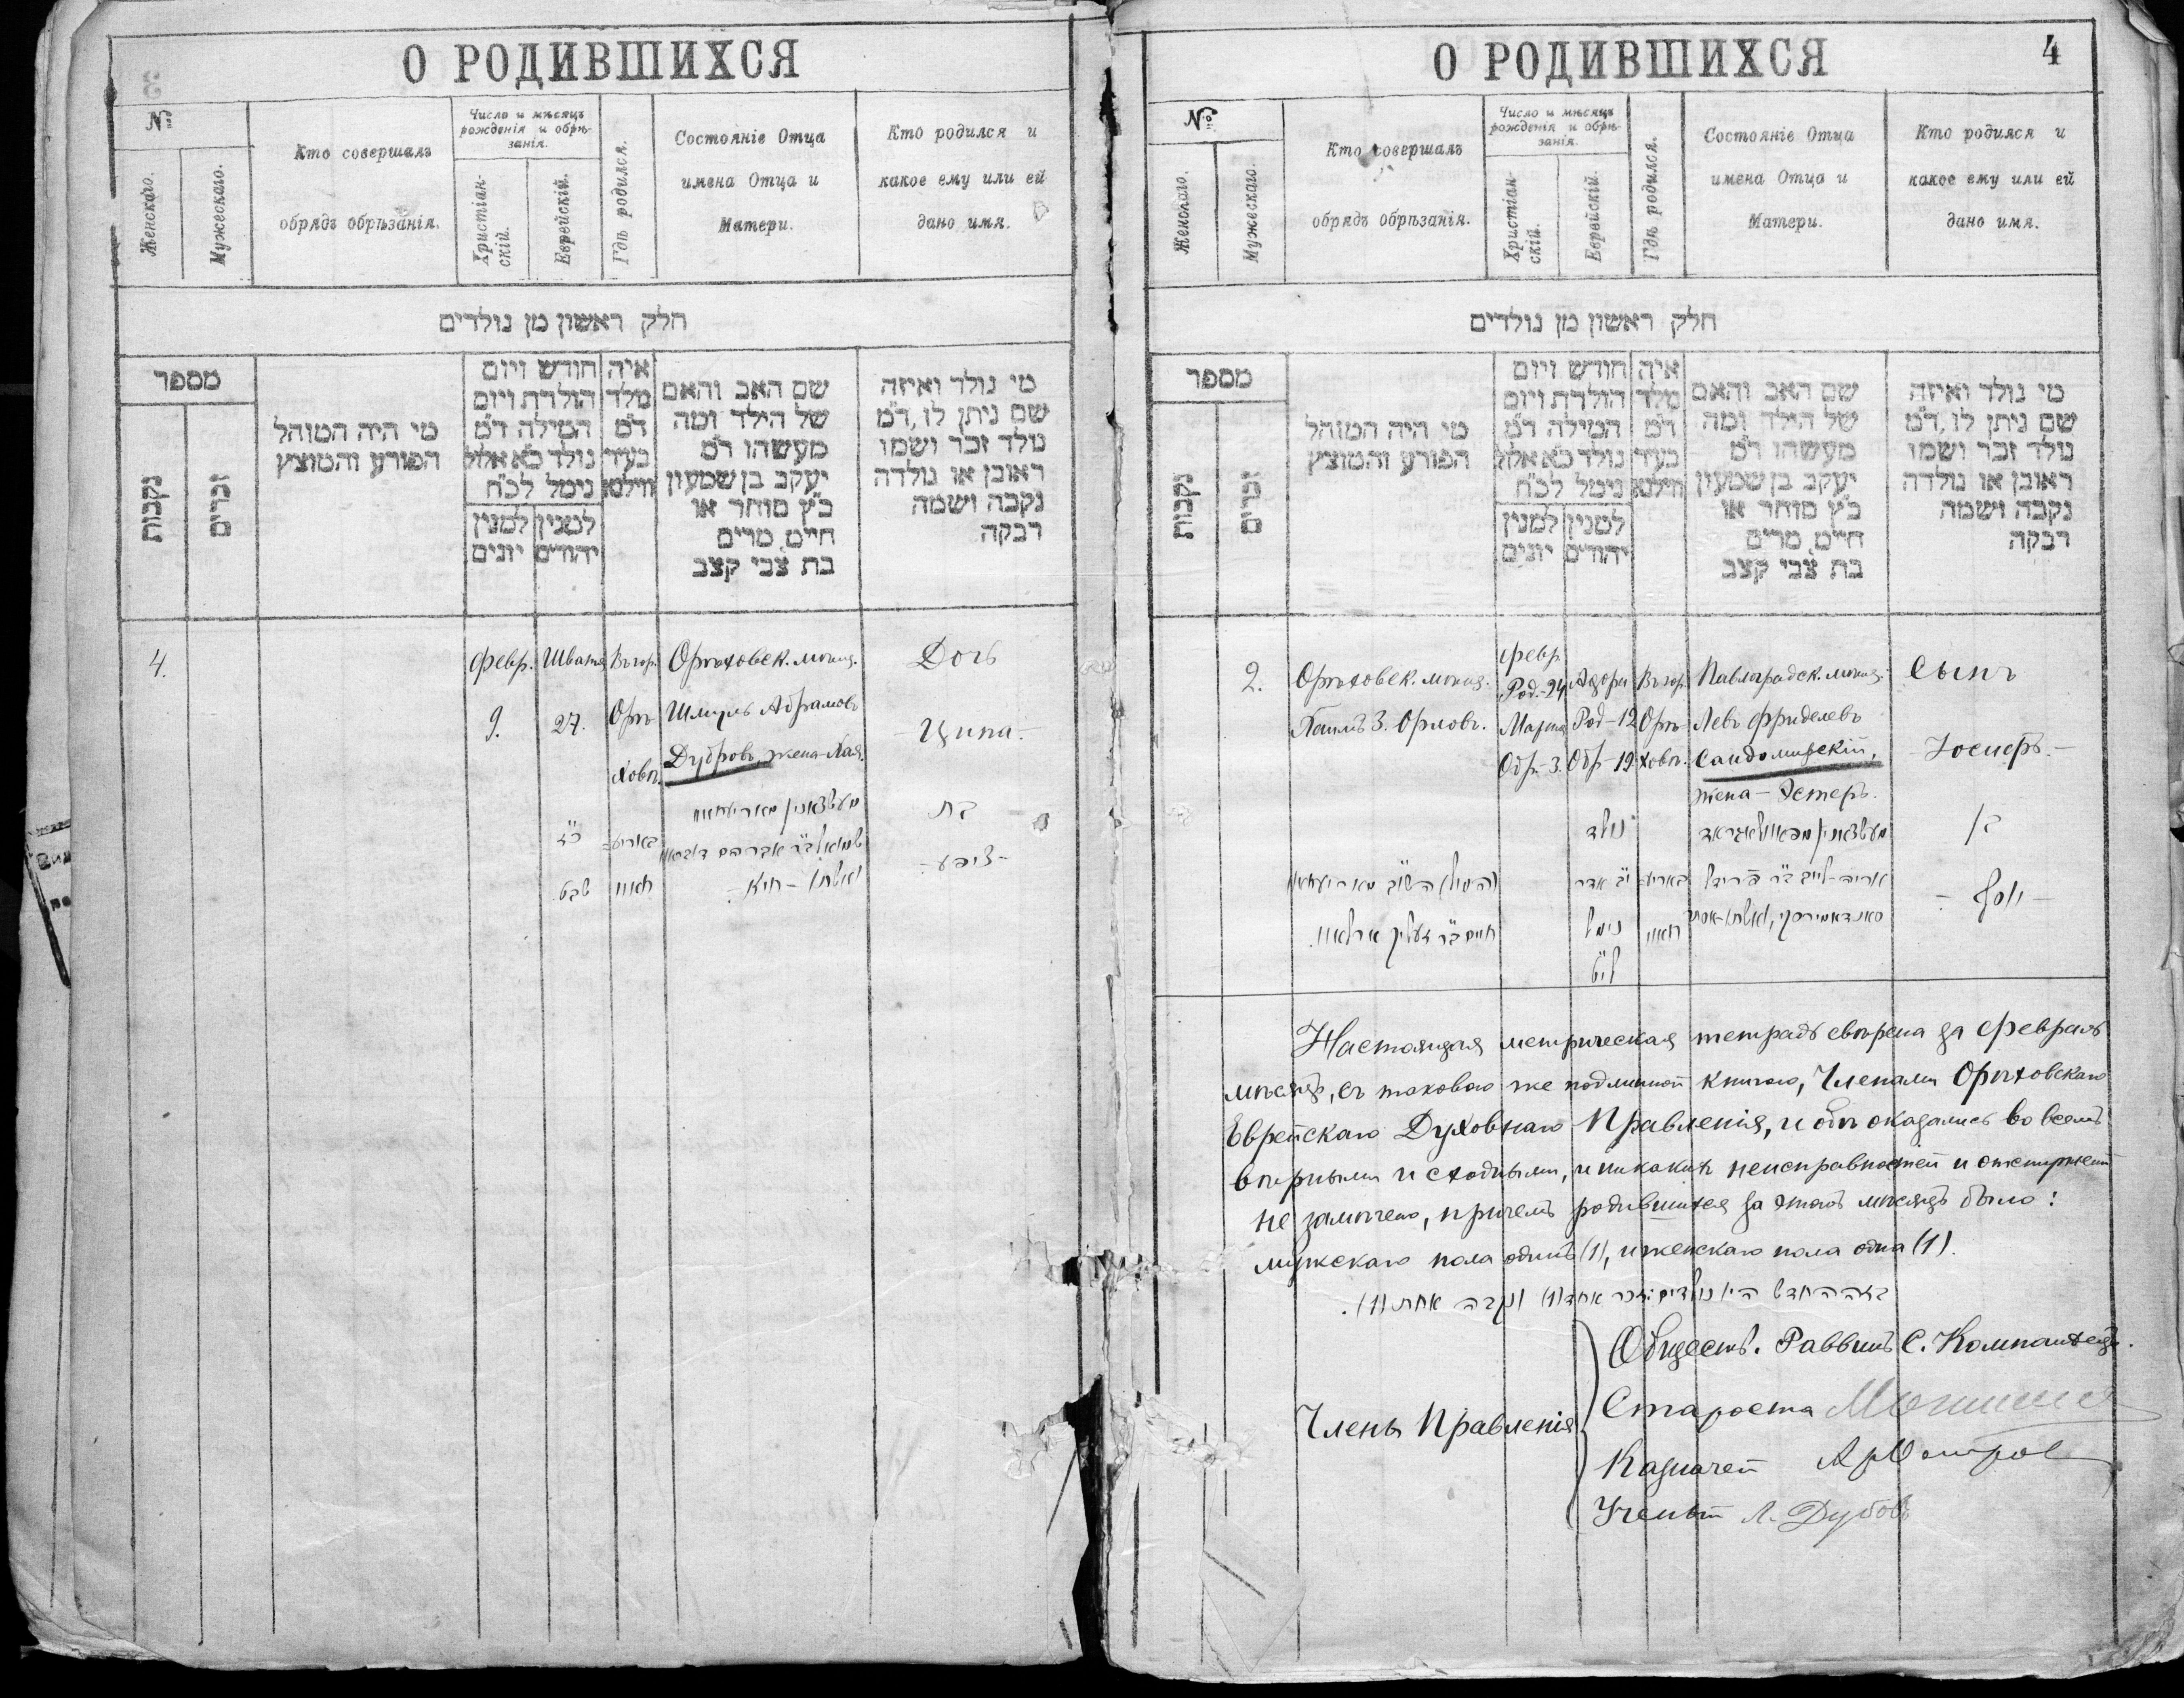 О РОДИВШИХСЯ
№
Женскаго.
Мужескаго.
Кто совершалъ
обрядъ обрѣзанія.
Число и мѣсяцъ
рожденія и обрѣ-
занія.
Христіан-
скій.
Еврейскій.
Гдѣ родился.
Состояніе Отца
имена Отца и
Матери.
Кто родился и
какое ему или ей
дано имя.
חלק ראשון מן נולדים
מספר
נקבות
זכרים
מי היה המוהל
הפורע והמוצץ
חודש ויום
הולדת ויום
המילה ד"מ
נולד כ"א אלול
נימל לכ"ח
למנין
יהודים
למנין
יונים
איה
מלד
ד"מ
בעיר
ווילנא
שם האב והאם
של הילד ומה
מעשהו ד"מ
יעקב בן שמעון
כ"ץ סוחר או
חיים, מרים
בת צבי קצב
מי נולד ואיזה
שם ניתן לו, ד"מ
נולד זכר ושמו
ראובן או נולדה
נקבה ושמה
רבקה
4.
Февр.
9.
Швата
27.
Въ гор.
Орѣ-
ховѣ.
Орѣховск. мѣщ.
Шмуль Абрамовъ
Дубровъ, жена-Хая.
Дочь
-Ципа.-
כ"ז
שבט
בת
-ציפע-
О РОДИВШИХСЯ
4
№
Женскаго.
Мужескаго.
Кто совершалъ
обрядъ обрѣзанія.
Число и мѣсяцъ
рожденія и обрѣ-
занія.
Христіан-
скій.
Еврейскій.
Гдѣ родился.
Состояніе Отца
имена Отца и
Матери.
Кто родился и
какое ему или ей
дано имя.
חלק ראשון מן נולדים
מספר
נקבות
זכרים
מי היה המוהל
הפורע והמוצץ
חודש ויום
הולדת ויום
המילה ד"מ
נולד כ"א אלול
נימל לכ"ח
למנין
יהודים
למנין
יונים
איה
מלד
ד"מ
בעיר
ווילנא
שם האב והאם
של הילד ומה
מעשהו ד"מ
יעקב בן שמעון
כ"ץ סוחר או
חיים, מרים
בת צבי קצב
מי נולד ואיזה
שם ניתן לו, ד"מ
נולד זכר ושמו
ראובן או נולדה
נקבה ושמה
רבקה
2.
Орѣховск. мѣщ.
Хаимъ З. Орловъ.
Февр.
Род.-24
Марта
Обр.-3.
Адара
Род-12
Обр-19.
Въ гор.
Орѣ-
ховѣ.
Павлоградск. мѣщ.
Левъ Фриделевъ
Сандомирскій,
жена - Эстеръ.
Сынъ
-Іосифъ.-
נולד
י"ב אדר
נימל
לי"ט
בן
- יוסף -
Настоящая метрическая тетрадь свѣрена за Февраль
мѣсяцъ, съ таковою же подлинной книгою, Членами Орѣховскаго
Еврейскаго Духовнаго Правленія, и обѣ оказались во всемъ
вѣрными и сходными, и никакихъ неисправностей и
не замѣчено, причемъ родившихся за этотъ мѣсяцъ было:
мужскаго пола одинъ (1), и женскаго пола одна (1).
בזה החדש היו נולדים: זכר אחד (1) ונקבה אחת (1).
Члены Правленія
Обществ. Раввинъ С. Компанѣецъ.
Староста
Казначей
Ученый Л. Дубовъ